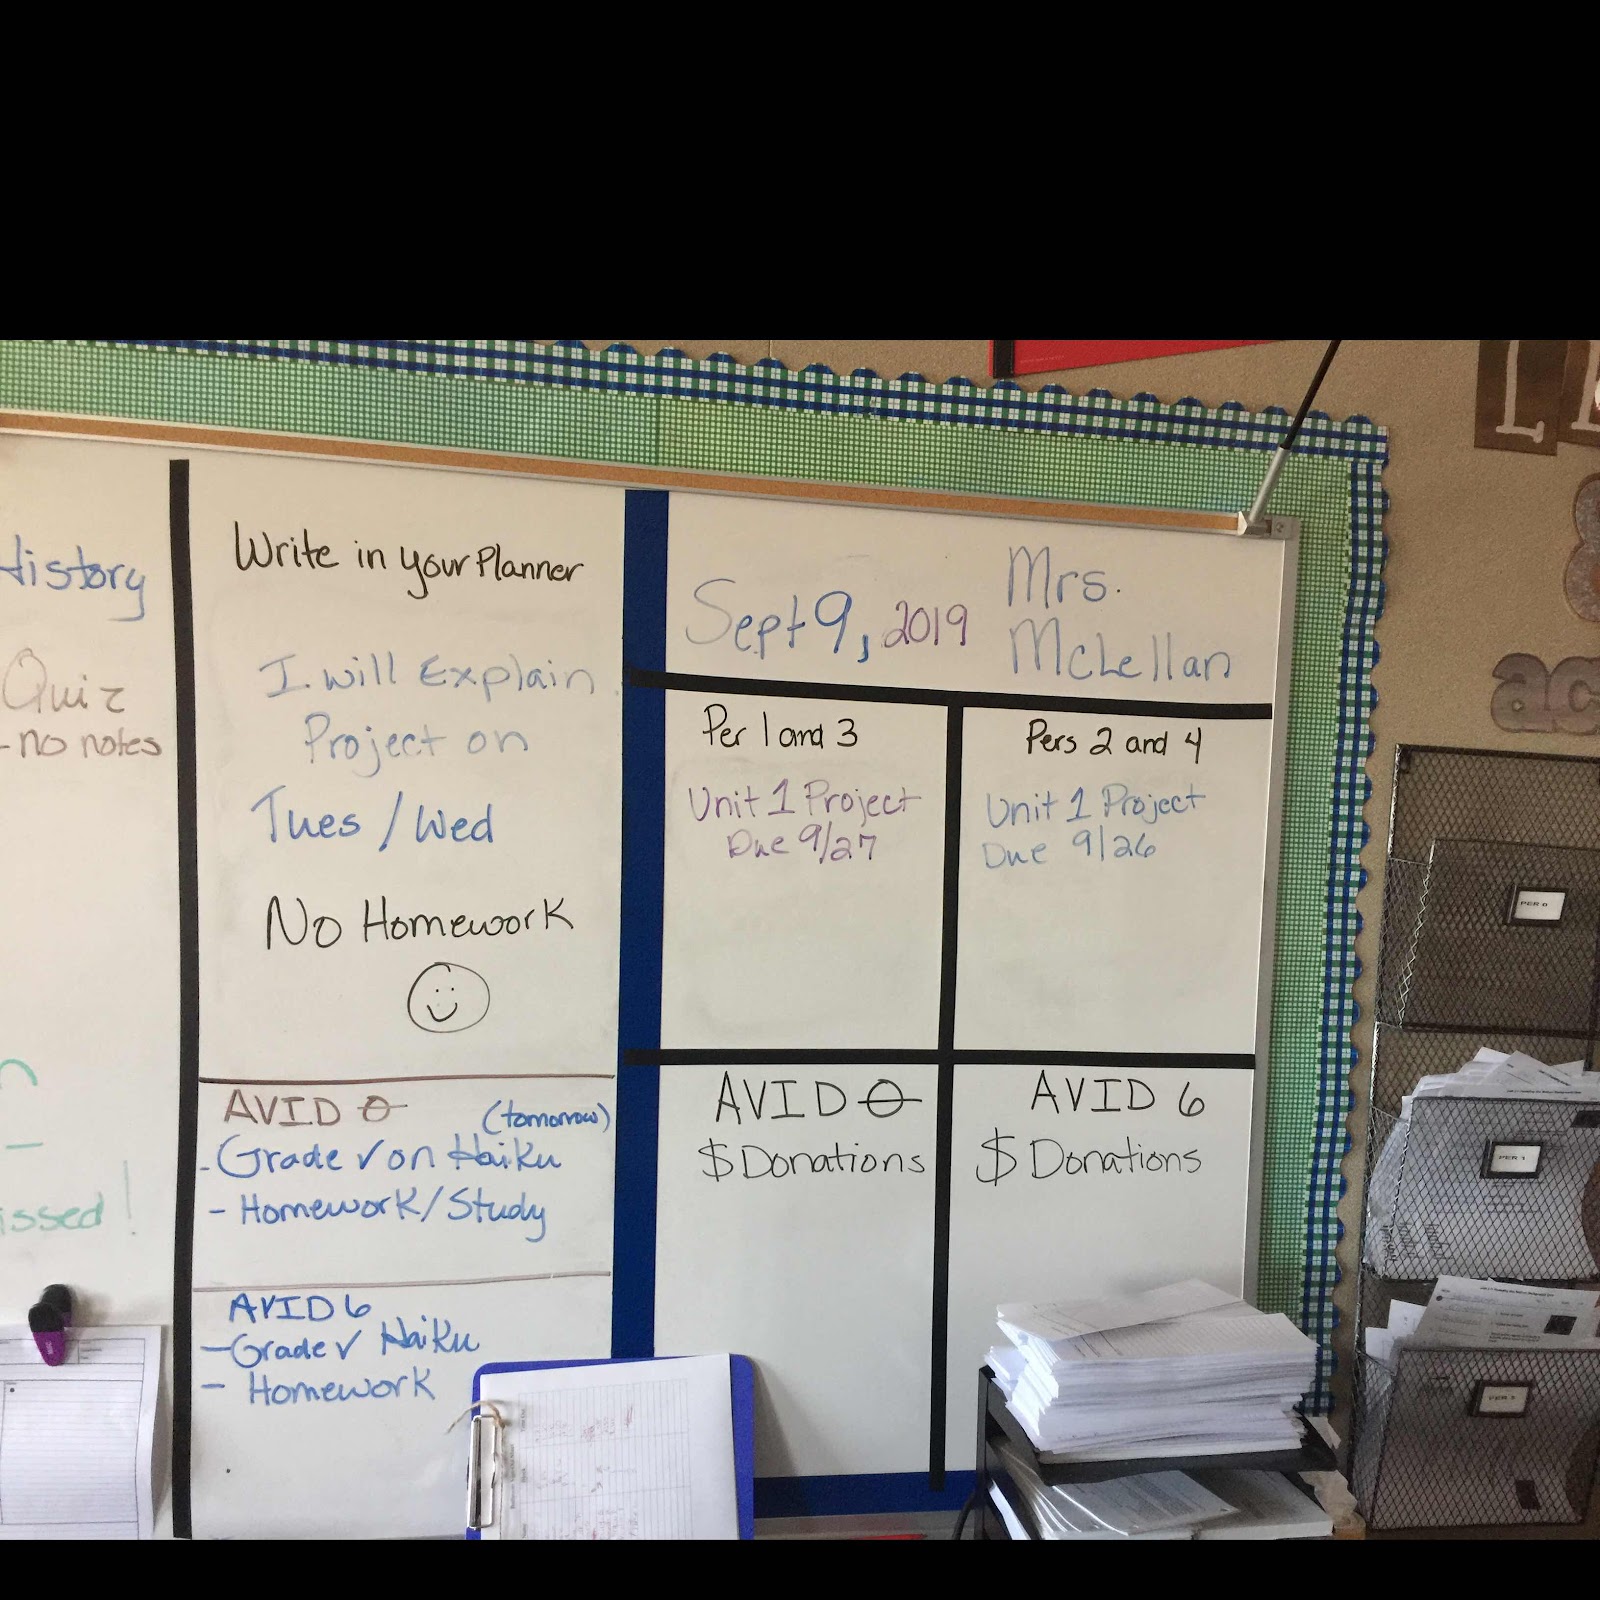 History
Quiz
-no notes
issed!
Write in your Planner
I will Explain
Project on
Tues / Wed
No Homework
AVID 0 (tomorrow)
- Grade ✓ on Haiku
- Homework/Study
AVID 6
- Grade ✓ Haiku
- Homework
Sept 9, 2019
Mrs.
McLellan
Per 1 and 3
Unit 1 Project
Due 9/27
Pers 2 and 4
Unit 1 Project
Due 9/26
AVID 0
$ Donations
AVID 6
$ Donations
ac
PER 0
PER 1